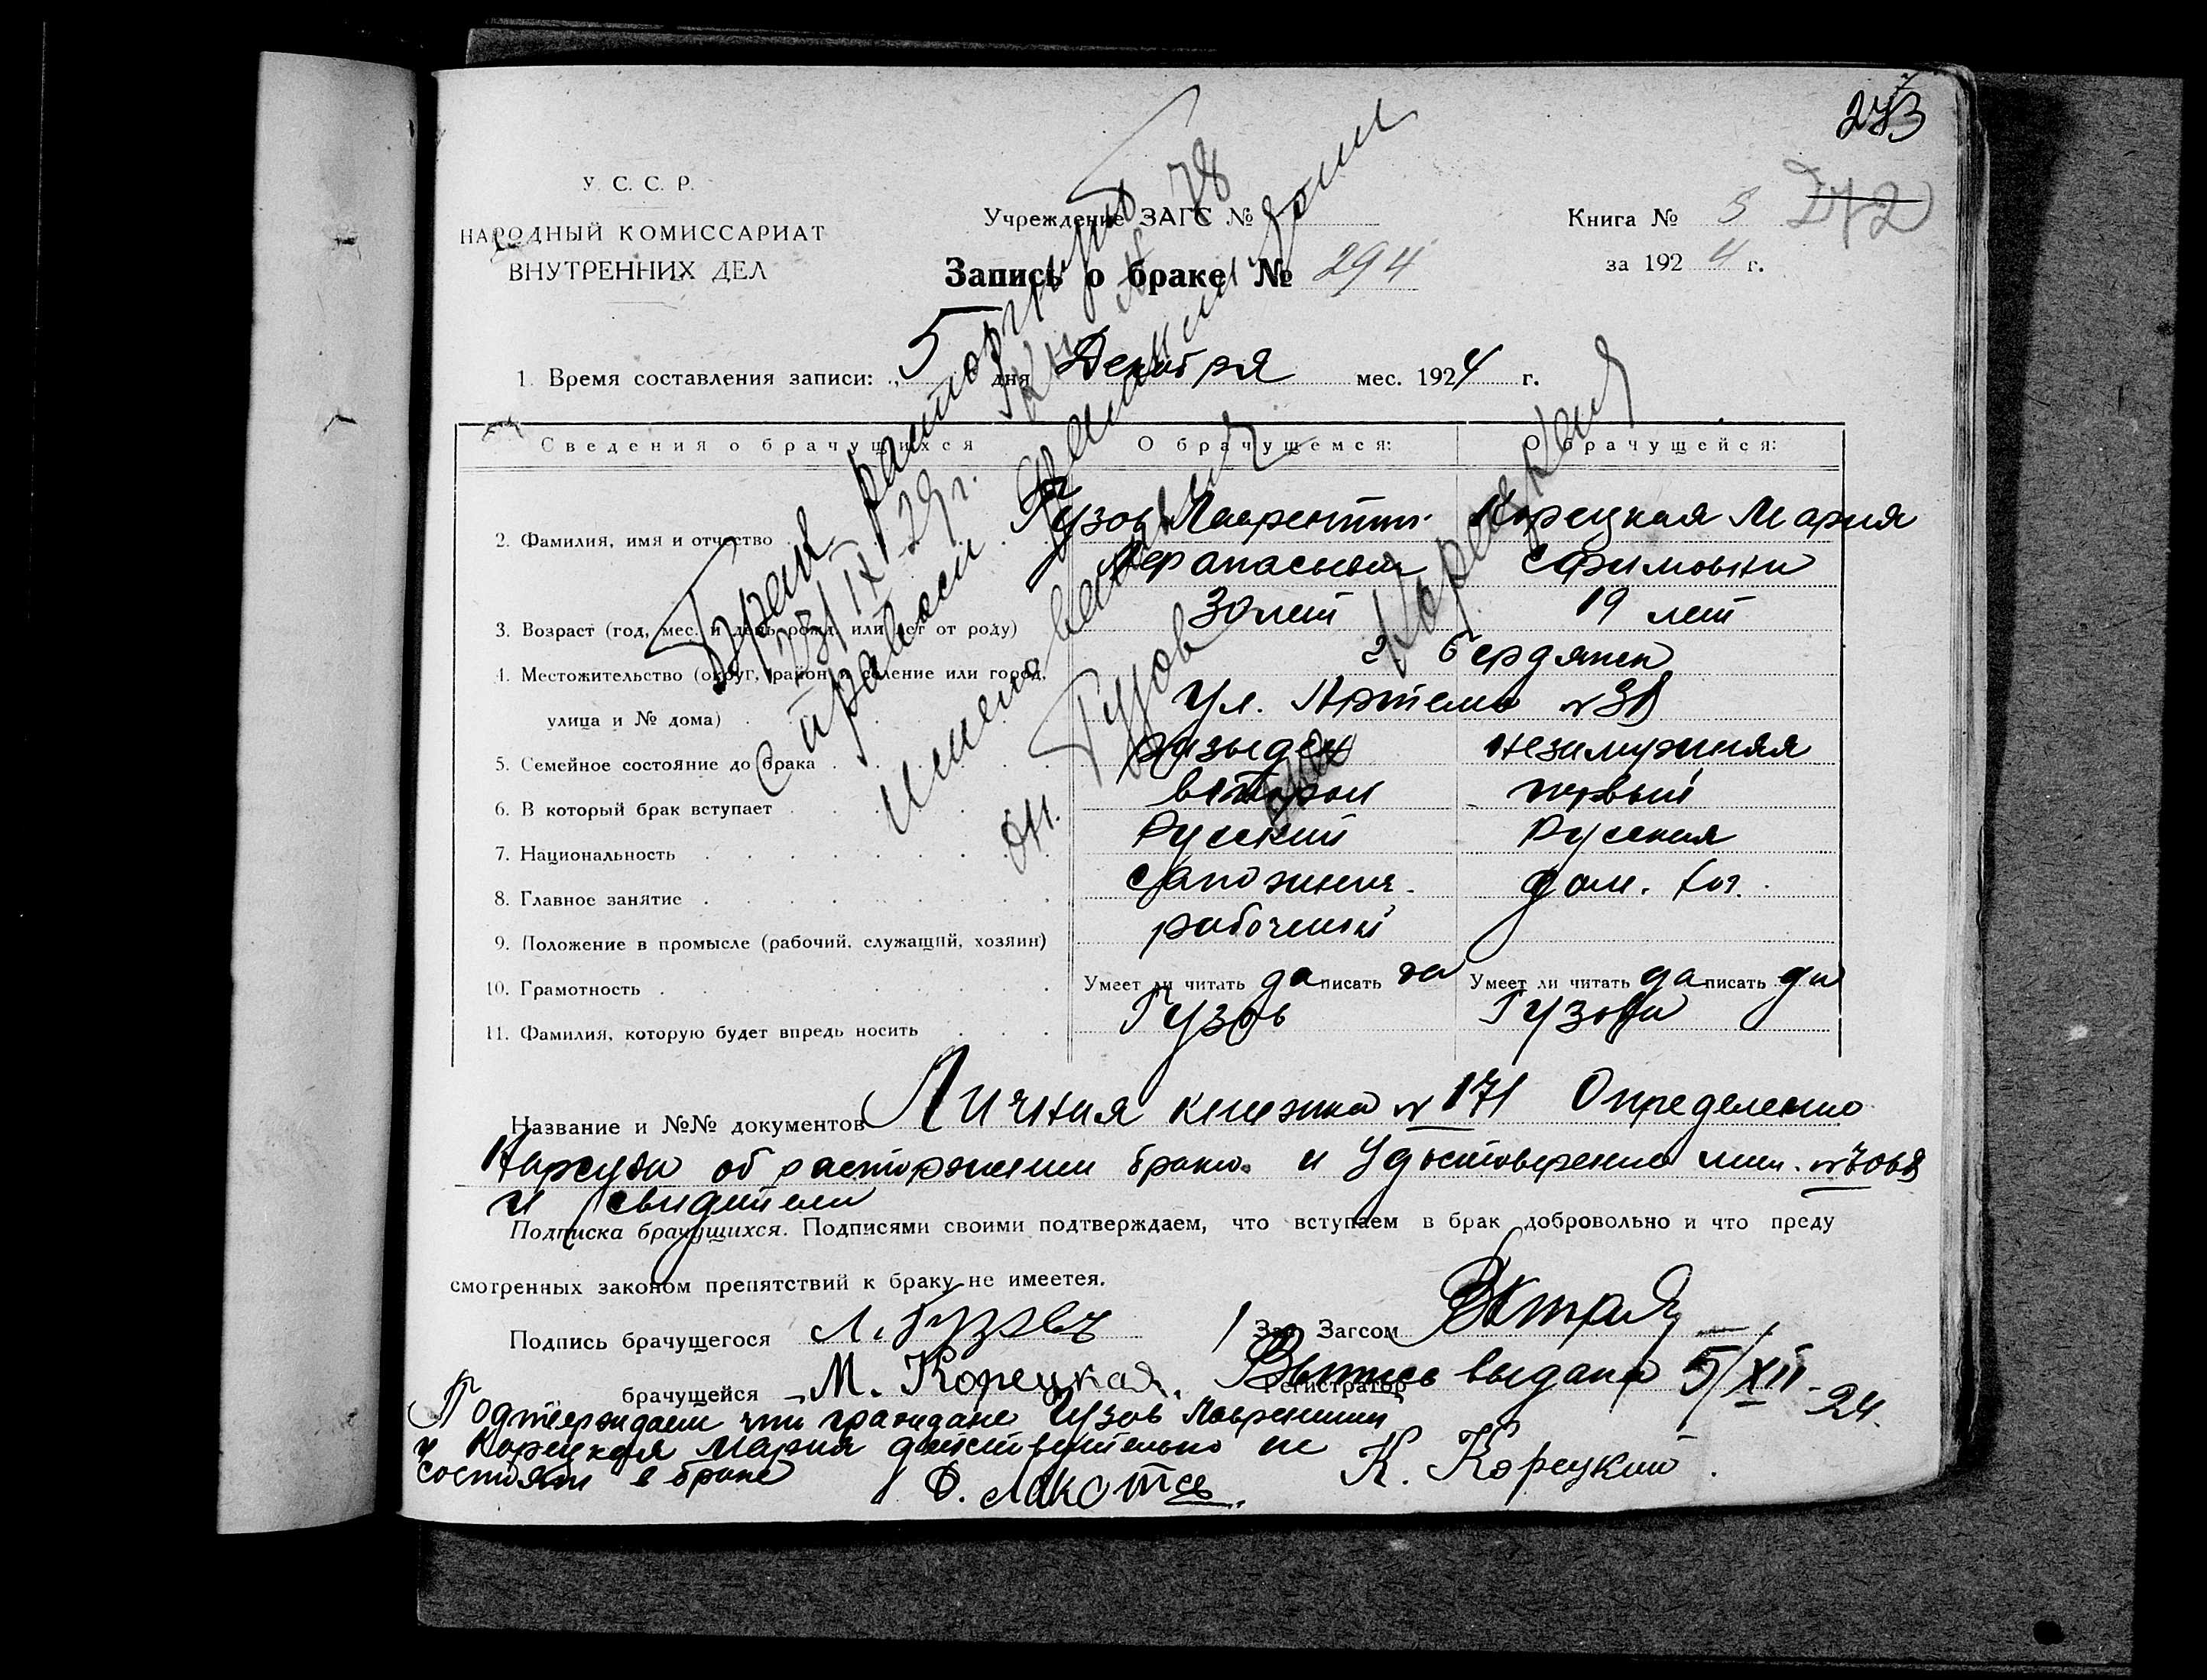 273
У. С. С. Р.
НАРОДНЫЙ КОМИССАРИАТ
ВНУТРЕННИХ ДЕЛ
Учреждение ЗАГС №
Запись о браке № 294
Книга № 5 272
за 1924 г.
1. Время составления записи: „5 дня Декабря мес. 1924 г.
Брак расторгнут 78
23/IX-29 г. Кн №
с правом фамилиями
именоваться
он. Гузов она Корецкая
Сведения о брачущихся О брачущемся: О брачущейся:
2. Фамилия, имя и отчество Гузов Лаврентий Корецкая Мария
Ефимовна
3. Возраст (год, мес. и день рожд. или лет от роду) 30 лет 19 лет
4. Местожительство (округ, район и селение или город, г. Бердянск
улица и № дома) Ул. Артема №38
5. Семейное состояние до брака незамужняя
6. В который брак вступает второй первый
7. Национальность Русский Русская
8. Главное занятие сапожник дом. хоз.
9. Положение в промысле (рабочий, служащий, хозяин) рабочий
10. Грамотность Умеет ли читать да писать да Умеет ли читать да писать да
11. Фамилия, которую будет впредь носить Гузов Гузова
Название и №№ документов Личная книжка №171 Определение
Нарсуда об расторжении брака и Удостоверение №7068
и свидетели
Подписка брачущихся. Подписями своими подтверждаем, что вступаем в брак добровольно и что преду
смотренных законом препятствий к браку не имеется.
Подпись брачущегося Л. Гузовъ Зав. Загсом
брачущейся М. Корецкая. Регистратор Выпись выдана 5/XII-24.
Подтверждаем что граждане Гузов Лаврентий
и Корецкая Мария действительно не
состоят в браке Ф. Лакотьев К. Корецкий.